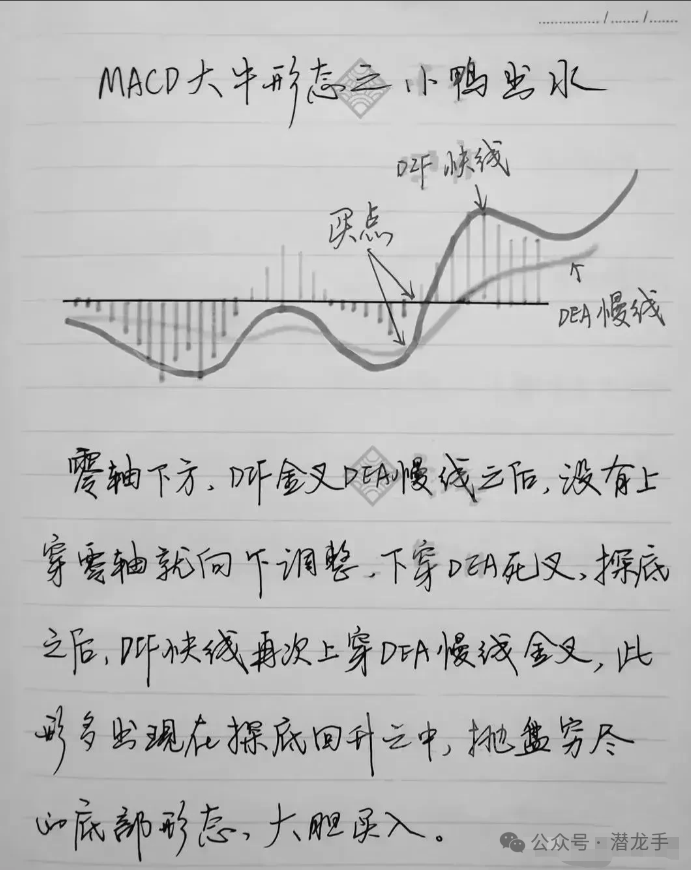 MACD大牛形态之小鸭出水
DIF快线
买点
DEA慢线
零轴下方,DIF金叉DEA慢线之后,没有上
穿零轴就向下调整,下穿DEA死叉,探底
之后,DIF快线再次上穿DEA慢线金叉,此
形多出现在探底回升之中,抛盘穷尽
的底部形态,大胆买入。
公众号·潜龙手